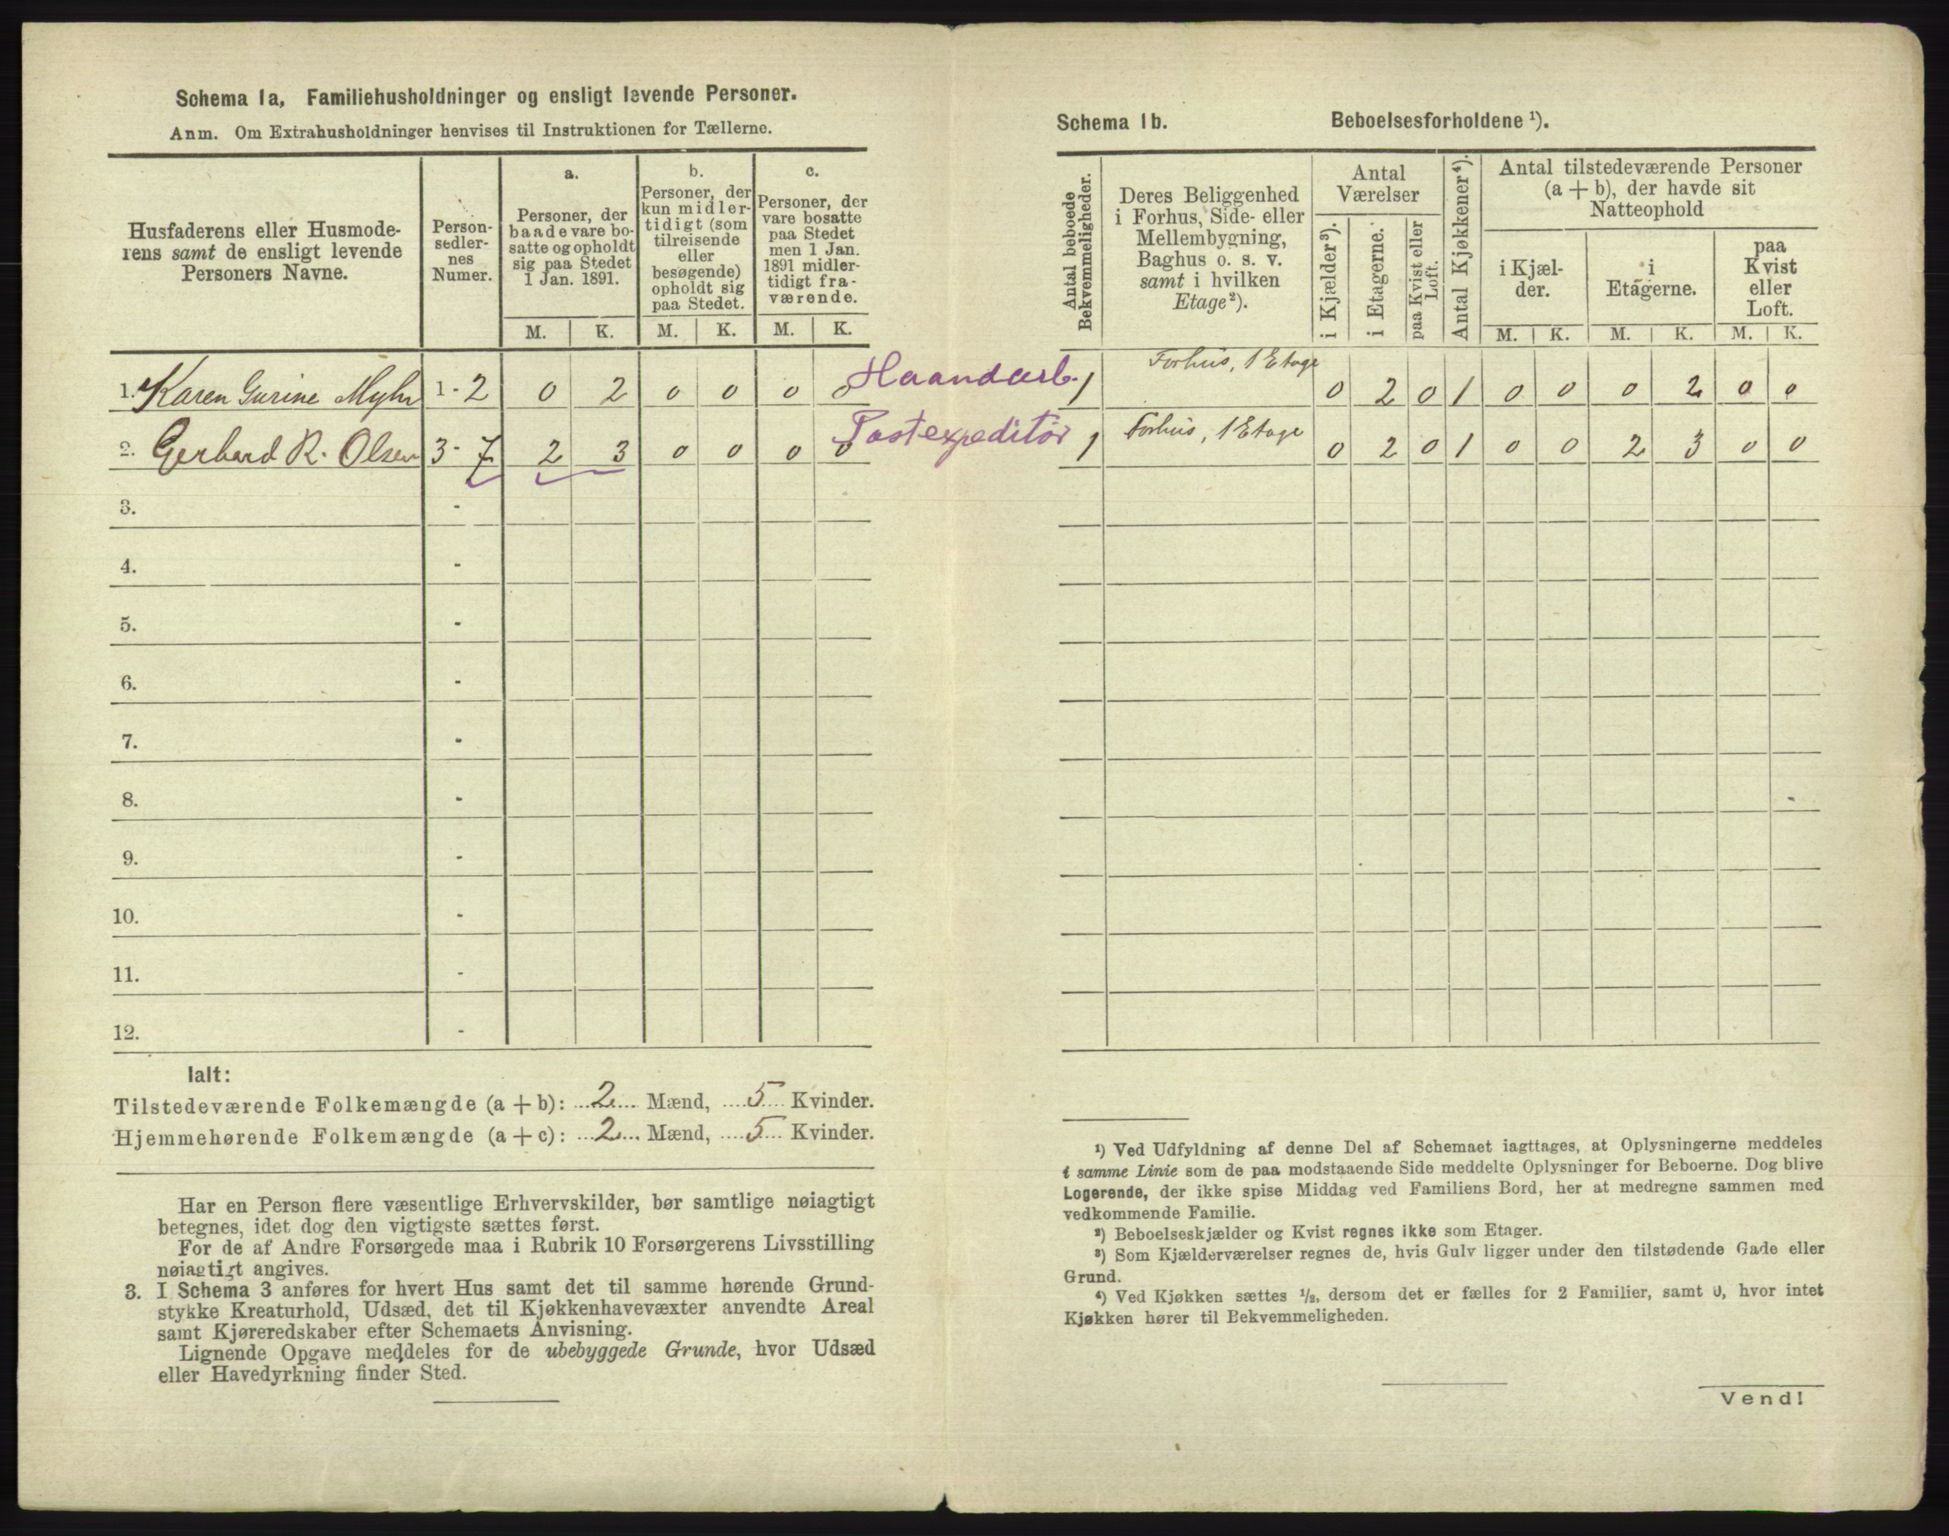 Schema 1a, Familiehusholdninger og ensligt levende Personer.
Anm. Om Extrahusholdninger henvises til Instruktionen for Tællerne.
Husfaderens eller Husmoderens samt de ensligt levende Personers Navne.
Personsedlernes Numer.
a.
Personer, der baade vare bosatte og opholdt sig paa Stedet 1 Jan. 1891.
b.
Personer, der kun midlertidigt (som tilreisende eller besøgende) opholdt sig paa Stedet.
c.
Personer, der vare bosatte paa Stedet men 1 Jan. 1891 midlertidigt fraværende.
M. K. M. K. M. K.
1. Karen Gurine Myhr 1 - 2 0 2 0 0 0 0 Haandarb.
2. Gerhard R. Olsen 3 - 7 2 3 0 0 0 0 Postexpeditør
3. -
4. -
5. -
6. -
7. -
8. -
9. -
10. -
11. -
12. -
Ialt:
Tilstedeværende Folkemængde (a + b): 2 Mænd, 5 Kvinder.
Hjemmehørende Folkemængde (a + c): 2 Mænd, 5 Kvinder.
Har en Person flere væsentlige Erhvervskilder, bør samtlige nøiagtigt
betegnes, idet dog den vigtigste sættes først.
For de af Andre Forsørgede maa i Rubrik 10 Forsørgerens Livsstilling
nøiagtigt angives.
3. I Schema 3 anføres for hvert Hus samt det til samme hørende Grund-
stykke Kreaturhold, Udsæd, det til Kjøkkenhavevæxter anvendte Areal
samt Kjøreredskaber efter Schemaets Anvisning.
Lignende Opgave meddeles for de ubebyggede Grunde, hvor Udsæd
eller Havedyrkning finder Sted.
Schema 1b. Beboelsesforholdene ¹).
Antal beboede Bekvemmeligheder.
Deres Beliggenhed i Forhus, Side- eller Mellembygning, Baghus o. s. v. samt i hvilken Etage²).
Antal Værelser
i Kjælder³).
i Etagerne.
paa Kvist eller Loft.
Antal Kjøkkener⁴).
Antal tilstedeværende Personer (a + b), der havde sit Natteophold
i Kjælder.
i Etagerne.
paa Kvist eller Loft.
M. K. M. K. M. K.
1 Forhus, 1 Etage 0 2 0 1 0 0 0 2 0 0
1 Forhus, 1 Etage 0 2 0 1 0 0 2 3 0 0
¹) Ved Udfyldning af denne Del af Schemaet iagttages, at Oplysningerne meddeles
i samme Linie som de paa modstaaende Side meddelte Oplysninger for Beboerne. Dog blive
Logerende, der ikke spise Middag ved Familiens Bord, her at medregne sammen med
vedkommende Familie.
²) Beboelseskjælder og Kvist regnes ikke som Etager.
³) Som Kjælderværelser regnes de, hvis Gulv ligger under den tilstødende Gade eller
Grund.
⁴) Ved Kjøkken sættes ½, dersom det er fælles for 2 Familier, samt 0, hvor intet
Kjøkken hører til Bekvemmeligheden.
Vend!